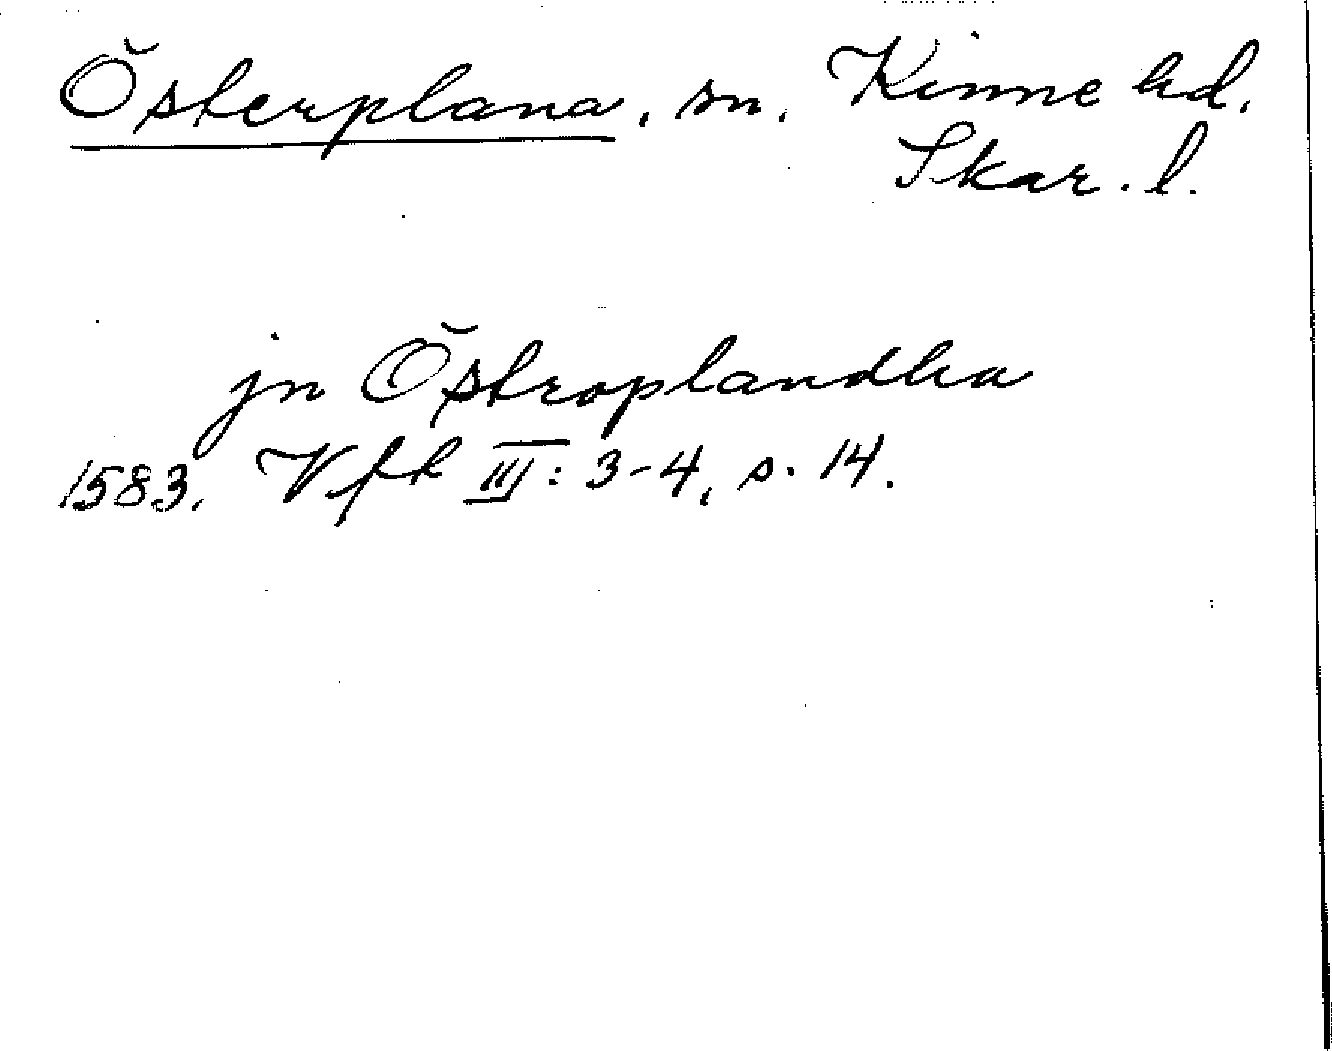 Österplana, sn. Kinne hd.
Skar. l.
jn Östroplandha
1583. Vft III: 3-4, s. 14.